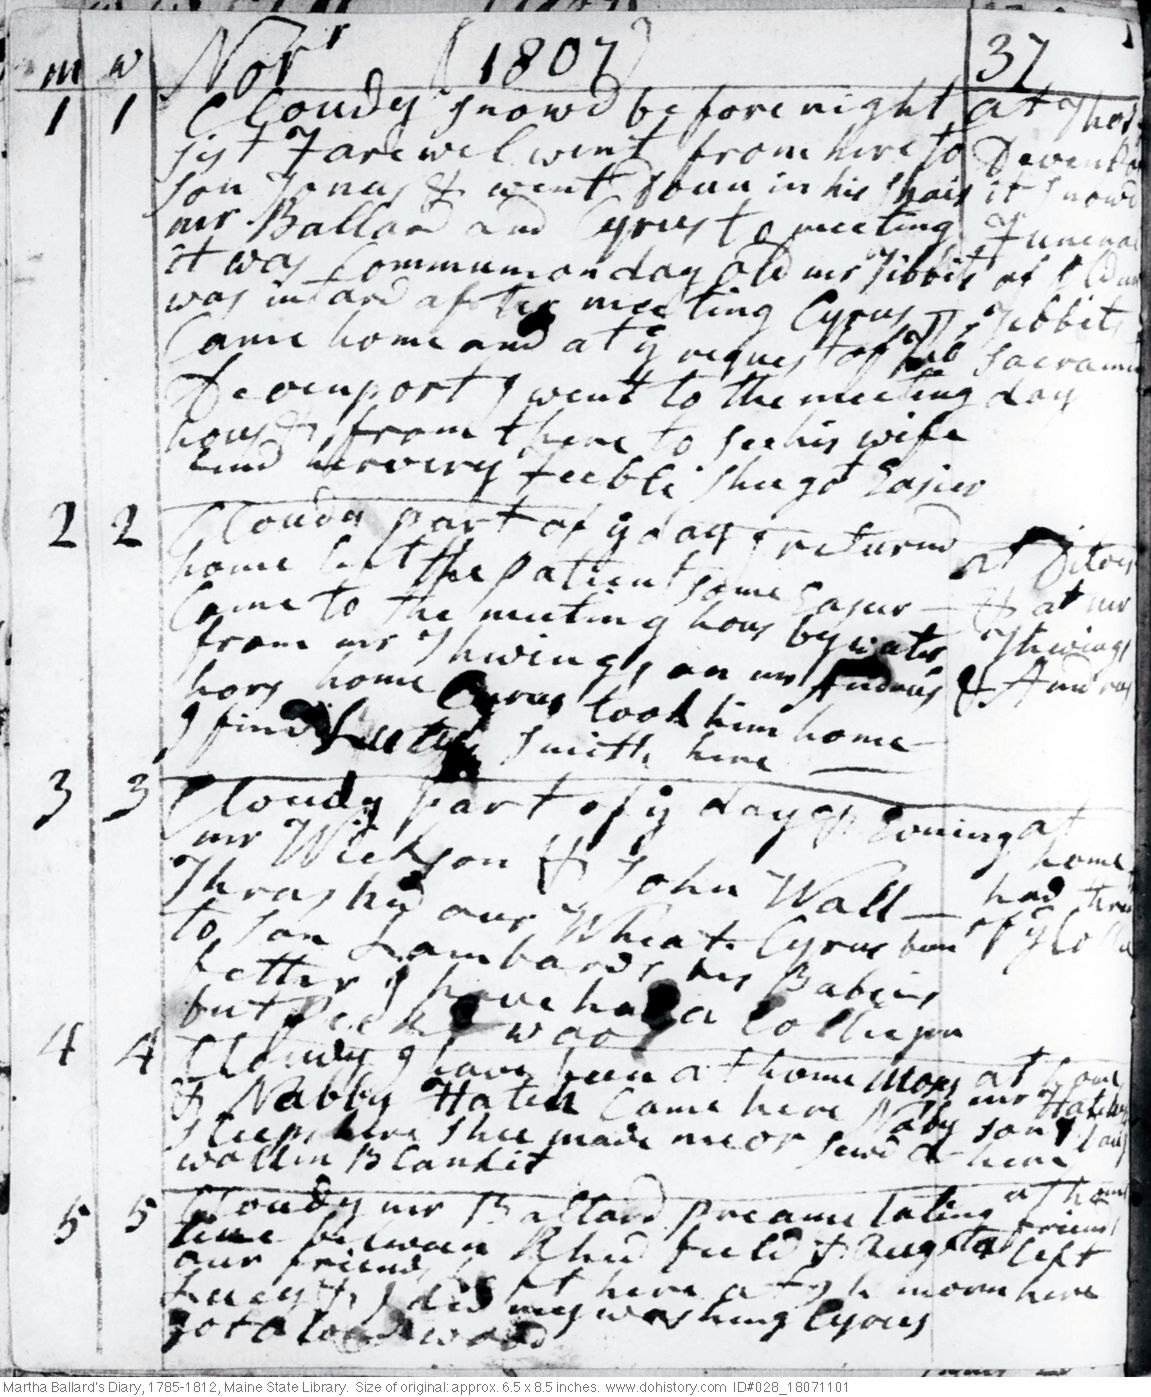 m w Novr (1807) 37
1 1 Cloudy snowd before night at Thos
sist Farewel went from here to Devenpo
son Jonas & went down in his shais it snowd
mr Ballard and Cyrus to meeting Funeral
it was Communion day old mr Tibbits of old mr
was intard after meeting Cyrus Tibbits
Came home and at ye request of Sacrame
Devenport I went to the meeting day
hous & from there to see his wife
find her very feeble shee got Easier
2 2 Cloudy part of ye day I returnd at Ditoes
home left the patient some Easier & at mr
Came to the meeting hous by water Thwings
from mr Thwings on mr Andrus & Andrus
hors home Cyrus took him home
I find Smith here
3 3 Cloudy part of ye day & Evning at
mr Wickson & John Wall home
Thrashd our Wheat Cyrus been had
to son Lambards his Babies of ye
better I have had a
but
4 4 Cloudy I have been at home at home
& Nabby Hatch Came here mr Hatch
sleeps here shee made me or sewd a here
wollin Blankit
5 5 Cloudy mr Ballard at home
line between field & Augusta friends
our friends left
Lucy & left here at 9 h morn here
I did my washing Cyrus
got a load wood
Martha Ballard's Diary, 1785-1812, Maine State Library. Size of original: approx. 6.5 x 8.5 inches. www.dohistory.com ID#028_18071101